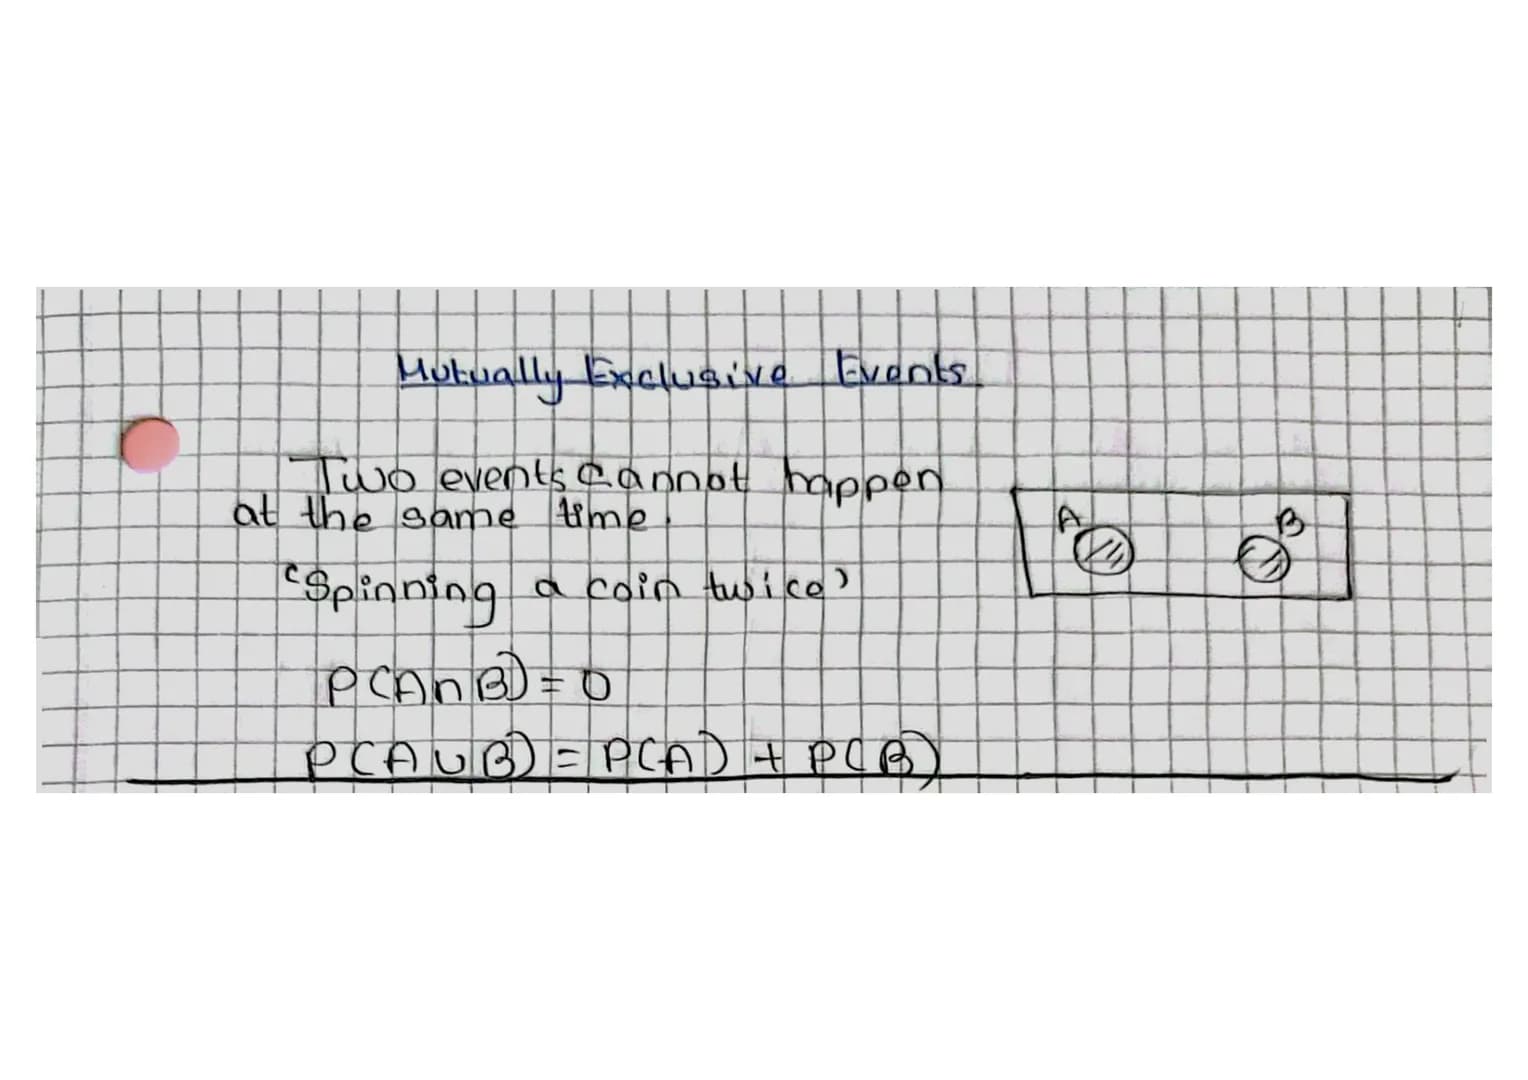 Mutually Exclusive Events
Two events cannot happen
at the same time.
A
B
'Spinning a coin twice'
P(A∩B) = 0
P(A∪B) = P(A) + P(B)